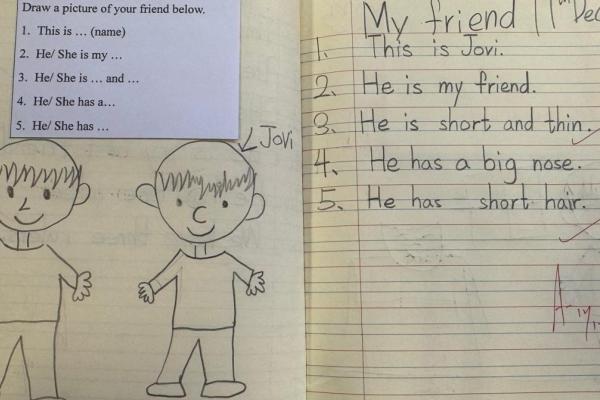 Draw a picture of your friend below.
1. This is ... (name)
2. He/ She is my ...
3. He/ She is ... and ...
4. He/ She has a...
5. He/ She has ...
Jovi
My friend
1. This is Jovi.
2. He is my friend.
3. He is short and thin.
4. He has a big nose.
5. He has short hair.